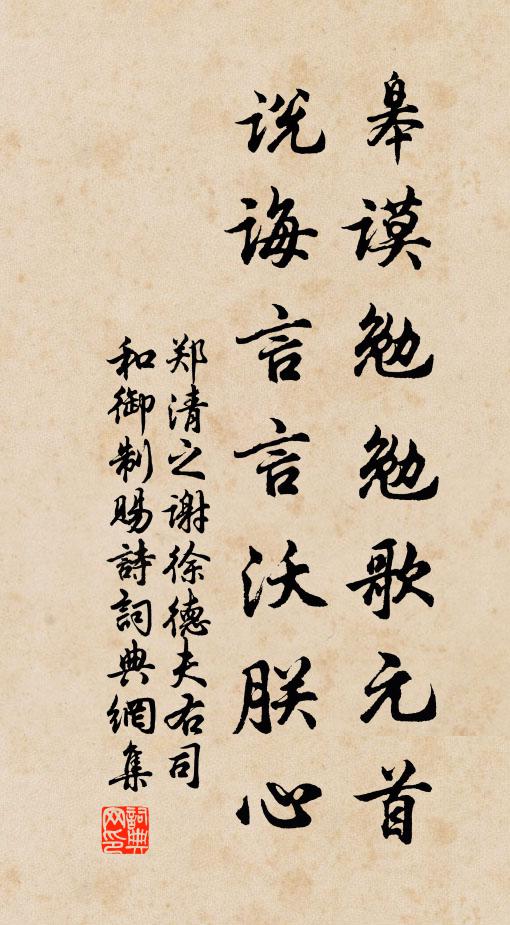 皋谟勉勉歌元首
说诲言言沃朕心
郑清之谢徐德夫右司
和御制赐詩詞典網集
詞典网印